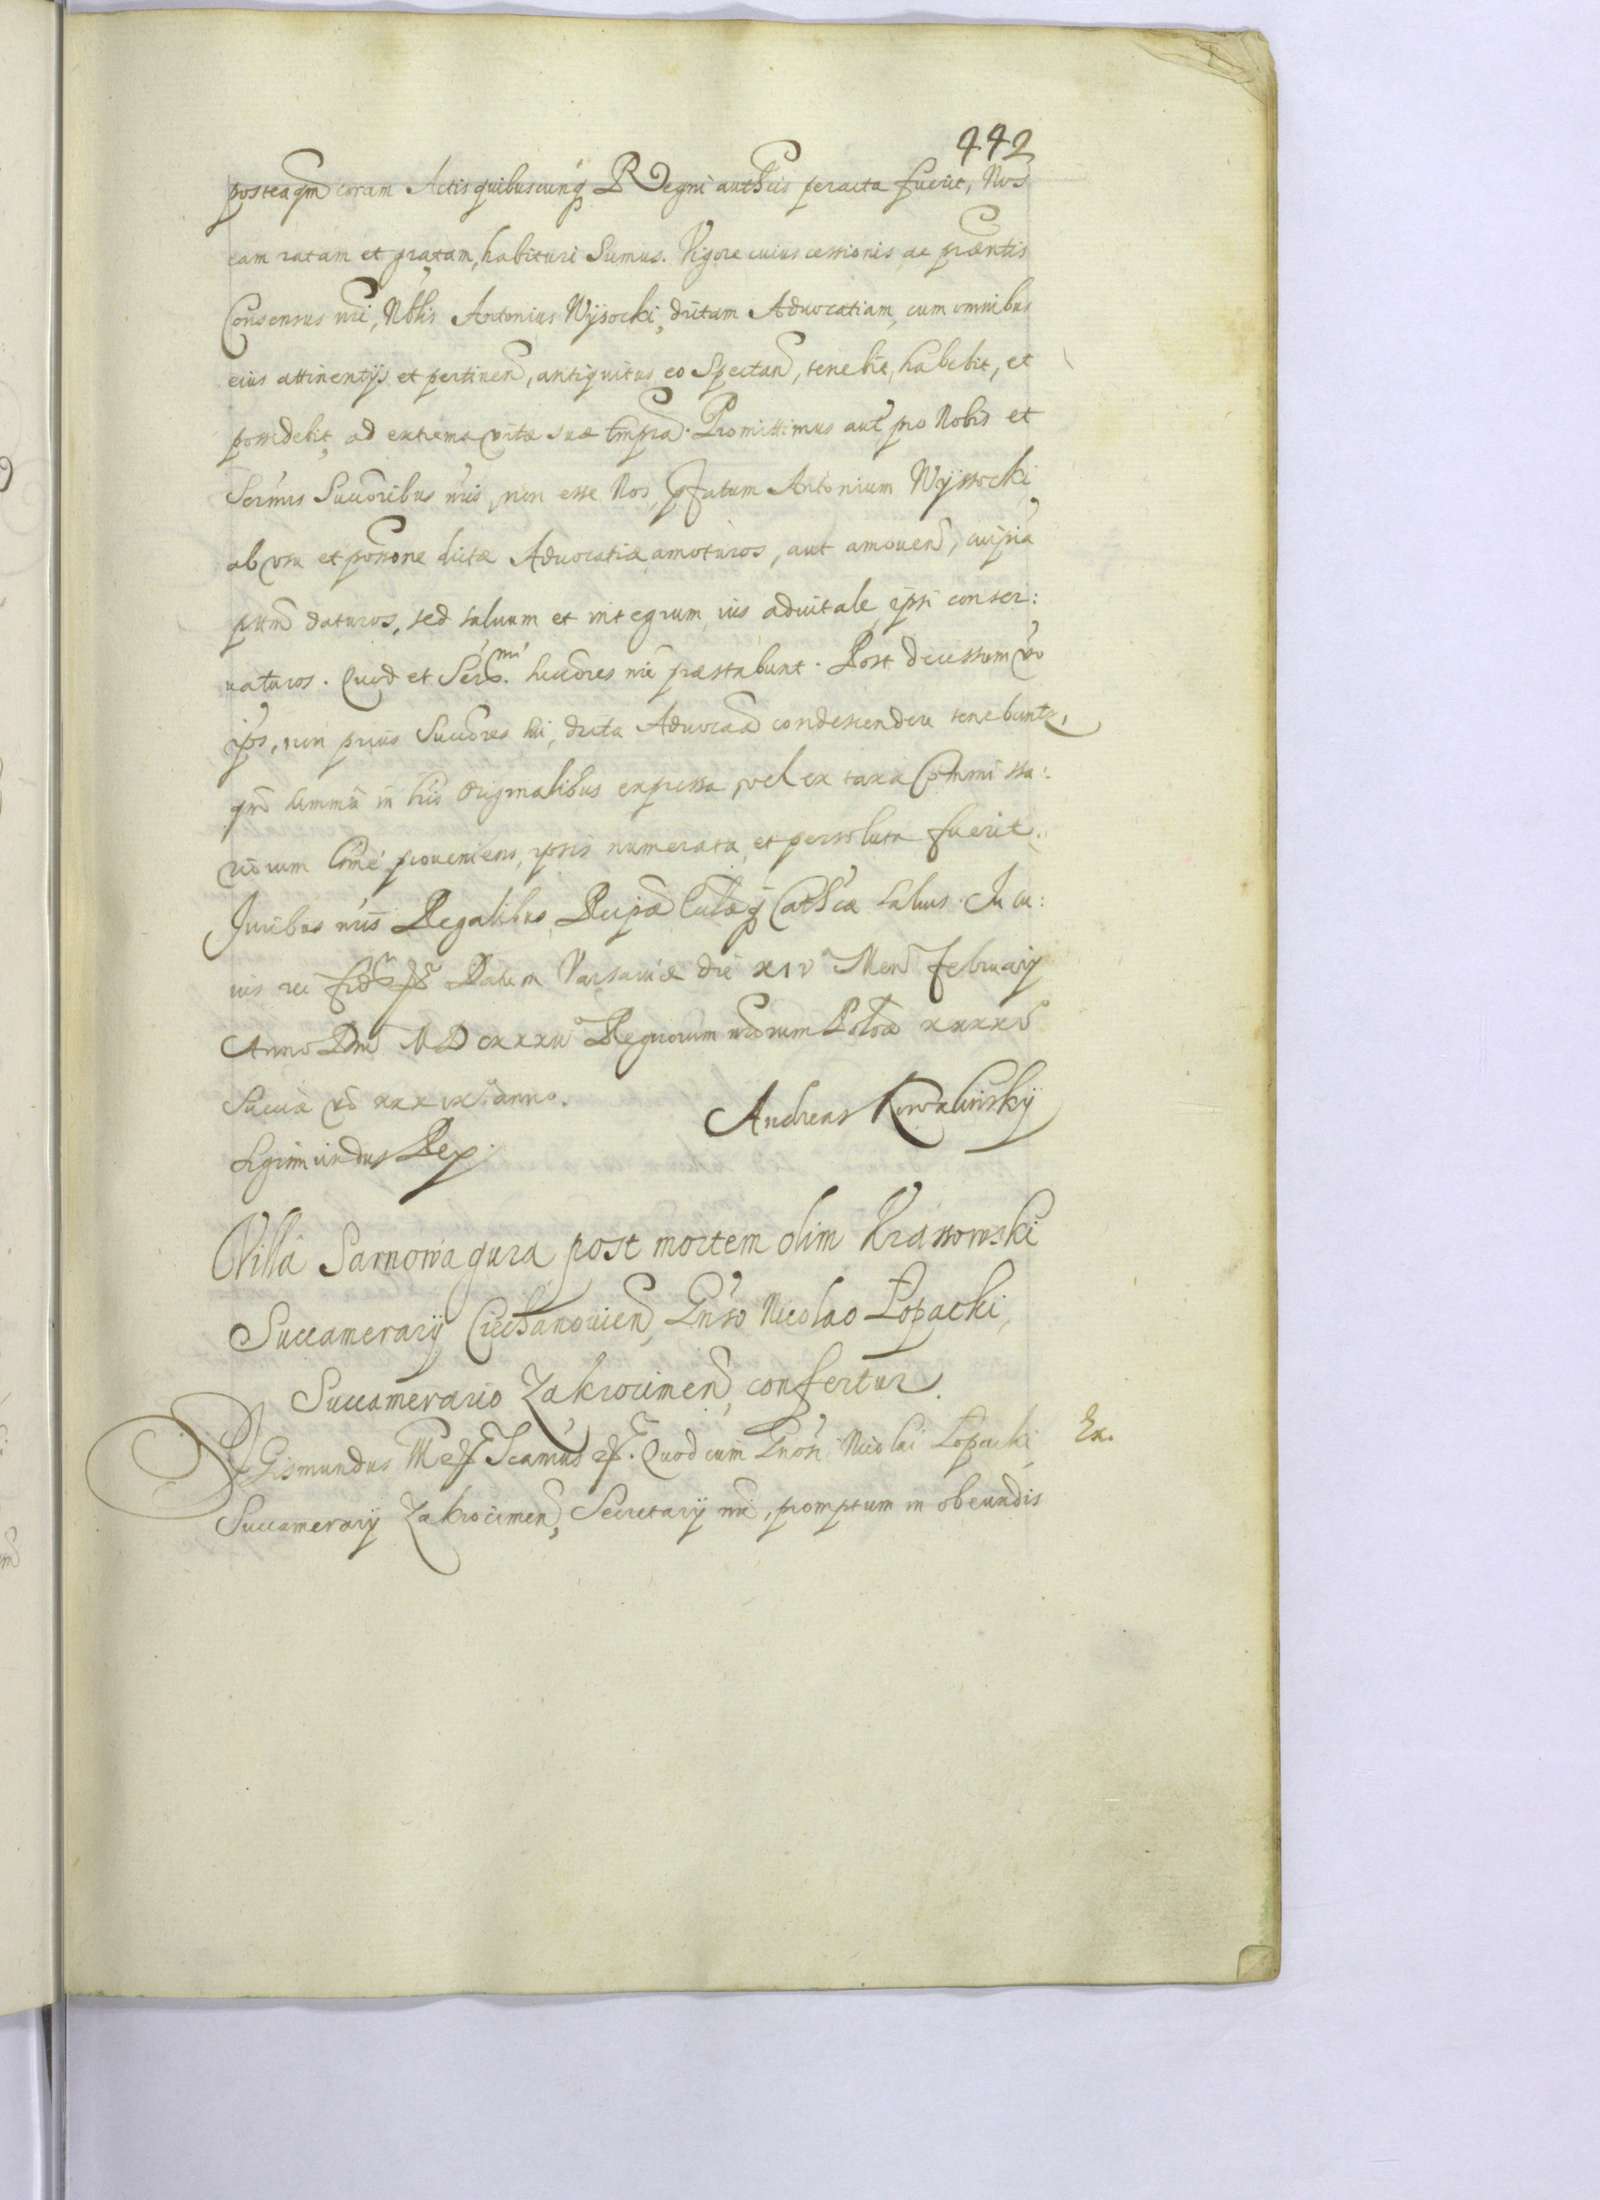 442
posteaqm coram Actis quibuscunq Regni authcis peracta fuerit, Nos
eam ratam et gratam, habituri sumus. Vigore cuius cessionis ac praentis
Consensus nri, Nblis Antonius Wysocki, dictam Advocatiam, cum omnibus
eius attinentijs et pertinen, antiquitus eo Spectan, tenebit, habebit, et
possidebit, ad extrema vitae suae tempra. Promittimus aut pro Nobis et
Sermis Succoribus nris, non esse Nos, pfatum Antonium Wyssocki
ab usu et possone dictae Advocatiae amoturos, aut amouend, cuipia
ptem daturos, sed saluum et integrum ius aduitale ipsi conser:
uaturos. Quod et Sermi. succores nri praestabunt. Post decessum vo
ips, non prius Succores sui, dicta Advocaa condescendere tenebuntr,
qm summa in lris originalibus expressa, vel ex taxa Commissa:
riorum lime proueniens, ipsis numerata et persoluta fuerit.
Juribus nris Regalibus Reipae Ecclaeq Cathcae saluis. In cu:
ius rei fidem etc Datum Varsauiae die XIV Men February
Anno Dni MDCXXXII Regnorum nrorum Poloae XXXXV
Sueciae vo XXXIX anno.
Andreas Kowalinskij
Sigimundus Rex.
Villa Sarnowa gura post mortem olim Krassowski
Succamerarij Ciechanouien, Gnso Nicolao Łopacki,
Succamerario Zakrocimen, confertur.
Sigismundus III etc Scamus etc. Quod cum Gnosi Nicolai Lopacki
Ex.
Succamerarij Zakrocimen, Secretarij nri, promptum in obeundis